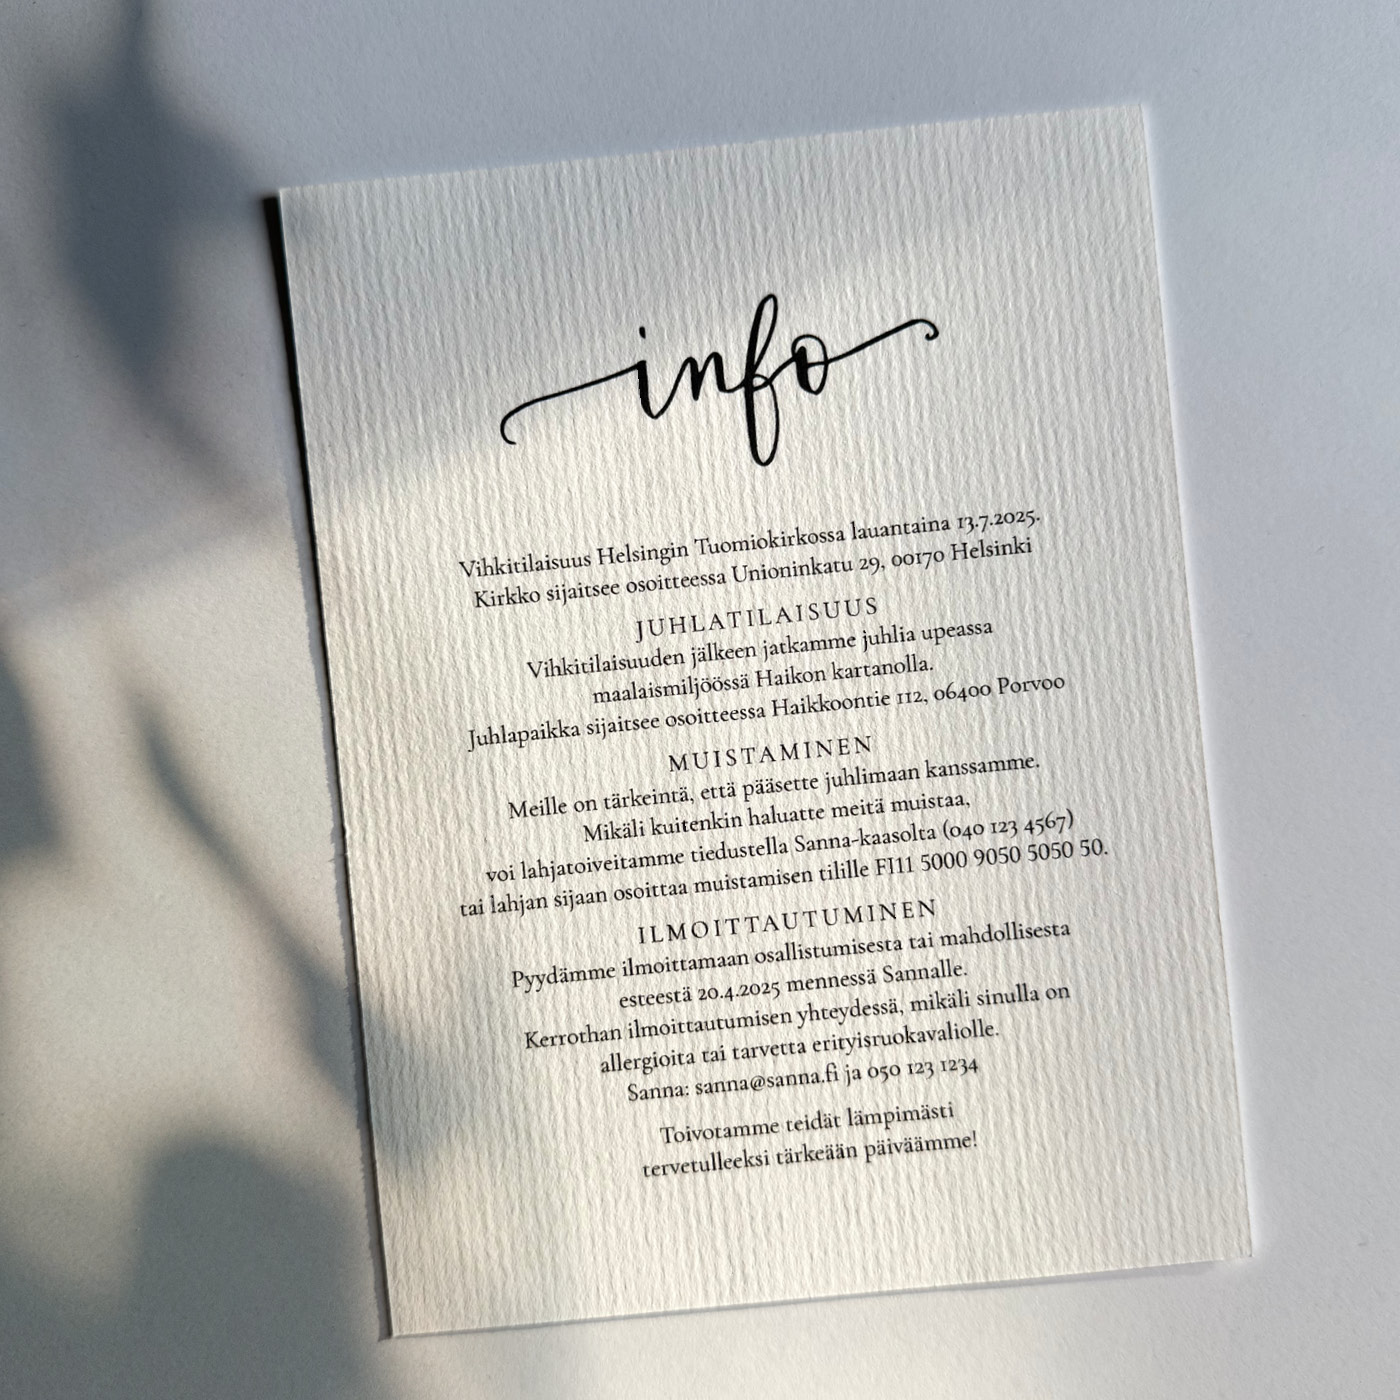 info
Vihkitilaisuus Helsingin Tuomiokirkossa lauantaina 13.7.2025.
Kirkko sijaitsee osoitteessa Unioninkatu 29, 00170 Helsinki
JUHLATILAISUUS
Vihkitilaisuuden jälkeen jatkamme juhlia upeassa
maalaismiljöössä Haikon kartanolla.
Juhlapaikka sijaitsee osoitteessa Haikkoontie 112, 06400 Porvoo
MUISTAMINEN
Meille on tärkeintä, että pääsette juhlimaan kanssamme.
Mikäli kuitenkin haluatte meitä muistaa,
voi lahjatoiveitamme tiedustella Sanna-kaasolta (040 123 4567)
tai lahjan sijaan osoittaa muistamisen tilille FI11 5000 9050 5050 50.
ILMOITTAUTUMINEN
Pyydämme ilmoittamaan osallistumisesta tai mahdollisesta
esteestä 20.4.2025 mennessä Sannalle.
Kerrothan ilmoittautumisen yhteydessä, mikäli sinulla on
allergioita tai tarvetta erityisruokavaliolle.
Sanna: sanna@sanna.fi ja 050 123 1234
Toivotamme teidät lämpimästi
tervetulleeksi tärkeään päiväämme!